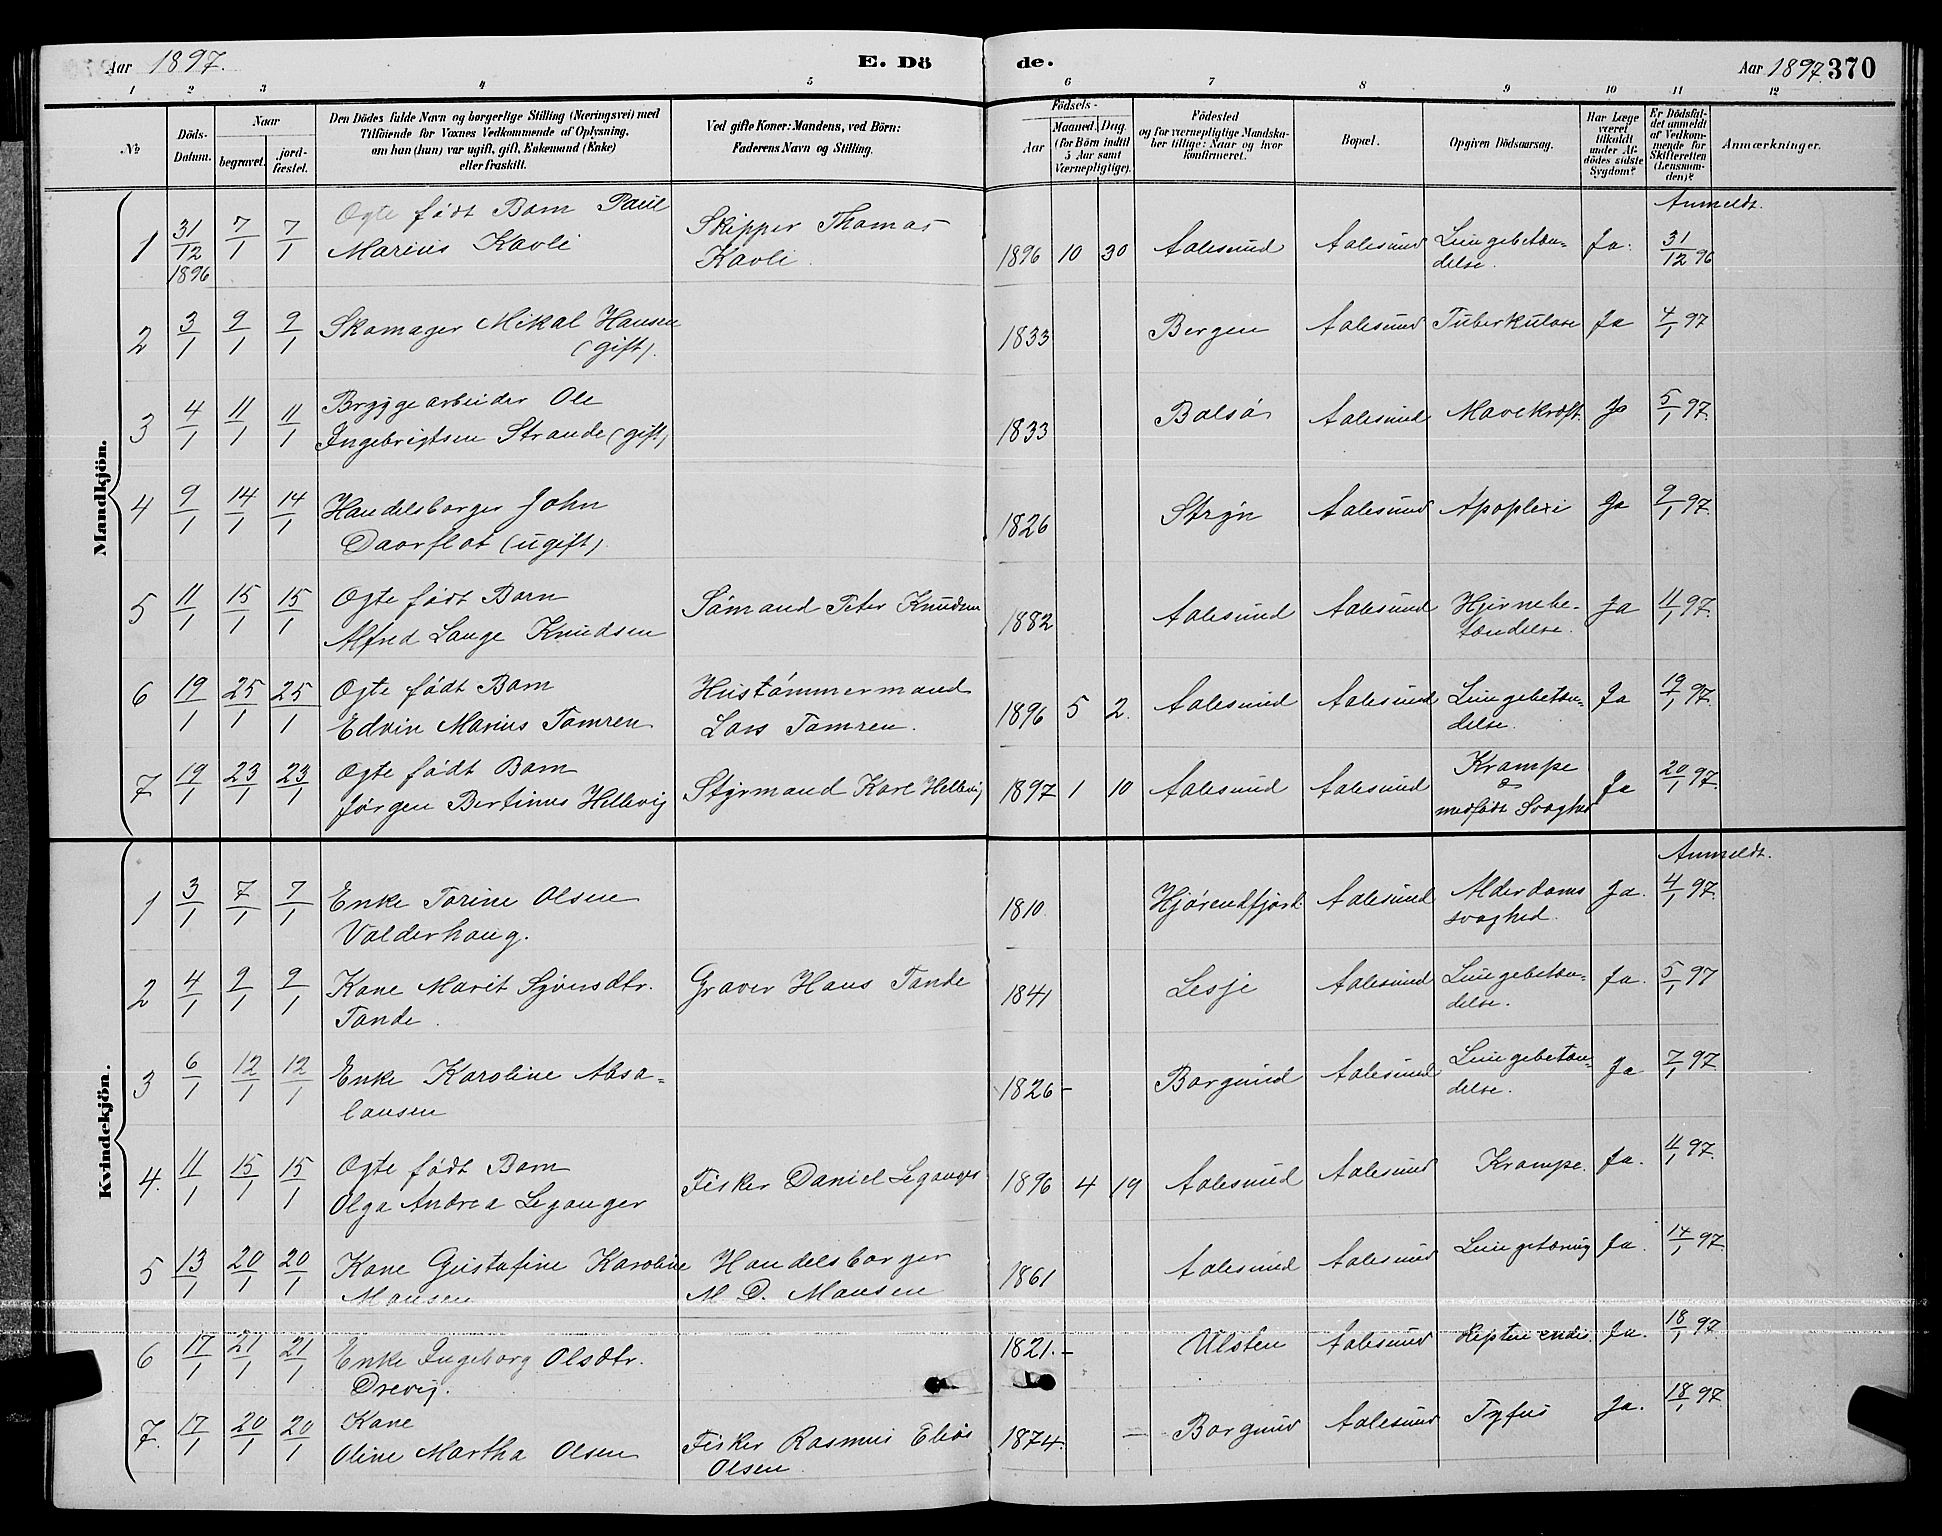 Aar 1897.
E. Dö
de.
Aar 1897. 370
1 2 3 4 5 6 7 8 9 10 11 12
№
Döds-
Datum.
Naar
begravet. jord-
fæstet.
Den Dödes fulde Navn og borgerlige Stilling (Næringsvei) med
Tilföiende for Voxnes Vedkommende af Oplysning,
om han (hun) var ugift, gift, Enkemand (Enke)
eller fraskilt.
Ved gifte Koner: Mandens, ved Börn:
Faderens Navn og Stilling.
Födsels-
Aar Maaned. Dag
(for Börn indtil
5 Aar samt
Værnepligtige).
Födested
og for værnepligtige Mandska-
ber tillige: Naar og hvor
konfirmeret.
Bopæl.
Opgiven Dödsaarsag.
Har Læge
været
tilkaldt
under Af-
dödes sidste
Sygdom?
Er Dödsfal-
det anmeldt
af Vedkom-
mende for
Skifteretten
(Lensman-
den)?
Anmærkninger.
Mandkjön.
Anmeldt.
1 31/12 1896 7/1 7/1 Ægte født Barn Paul
Marius Kavli Skipper Thomas
Kavli. 1896 10 30 Aalesund Aalesund Lungebetæn-
delse. Ja. 31/12 96
2 3/1 9/1 9/1 Skomager Mikal Hansen
(gift). 1833 Bergen Aalesund Tuberkulose Ja 4/1 97
3 4/1 11/1 11/1 Bryggearbeider Ole
Ingebrigtsen Strande (gift) 1833 Bolsø Aalesund Mavekræft. Ja 5/1 97.
4 9/1 14/1 14/1 Handelsborger John
Daorflot (ugift). 1826 Stryn Aalesund Apoplexi Ja 9/1 97.
5 11/1 15/1 15/1 Ægte født Barn
Alfred Lange Knudsen Sømand Peter Knudsen 1882 Aalesund Aalesund Hjernebe-
tændelse. Ja 11/1 97.
6 19/1 25/1 25/1 Ægte født Barn
Edvin Marius Tomren Hustømmermand
Lars Tomren. 1896 5 2. Aalesund Aalesund Lungebetæn-
delse. Ja 19/1 97.
7 19/1 23/1 23/1 Ægte født Barn
Jørgen Bertinus Hellevig Styrmand Karl Hellevig 1897 1 10 Aalesund Aalesund Krampe
&
medfødt Svaghed Ja 20/1 97.
Kvindekjön.
Anmeldt.
1 3/1 7/1 7/1 Enke Torine Olsen
Valderhaug. 1810. Hjørendfjord Aalesund Alderdoms
svaghed. Ja. 4/1 97.
2 4/1 9/1 9/1 Kone Marit Syversdtr.
Tande. Graver Hans Tande 1841 Lesje Aalesund Lungebetæn-
delse. Ja. 5/1 97
3 6/1 12/1 12/1 Enke Karoline Absa-
lonsen 1826- Borgund Aalesund Lungebetæn-
delse. Ja 7/1 97
4. 11/1 15/1 15/1 Ægte født Barn
Olga Andrea Leganger Fisker Daniel Leganger 1896 4 19 Aalesund Aalesund Krampe. Ja. 11/1 97.
5 13/1 20/1 20/1 Kone Gustafine Karoline
Monsen Handelsborger
M D. Monsen 1861 Aalesund Aalesund Lungetæring Ja. 14/1 97
6 17/1 21/1 21/1 Enke Ingeborg Olsdtr.
Drevig. 1821.- Ulsten Aalesund Ja. 18/1 97
7. 17/1 20/1 20/1 Kone
Oline Martha Olsen Fisker Rasmus Elias
Olsen. 1874. - Borgund Aalesund Tyfus Ja. 18/1 97